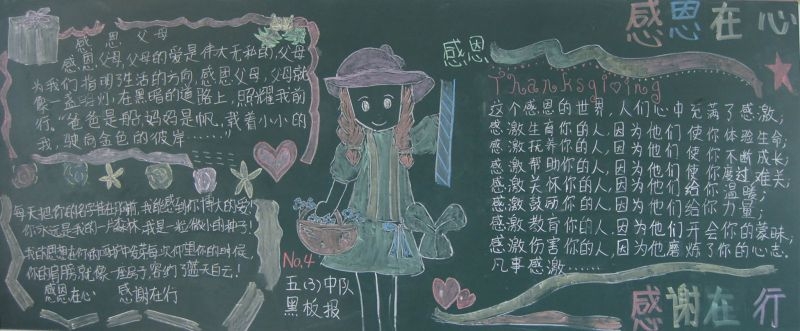 感恩父母
感恩父母,父母的爱是伟大无私的,父母
为我们指明了生活的方向,感恩父母,父母就
像一盏明灯,在黑暗的道路上,照耀我前
行。“爸爸是船,妈妈是帆,载着小小的
我,驶向金色的彼岸……”
每天把你的名字挂在胸前,我能感到你博大的爱!
你永远是我的一片森林,我是一光做小的种子!
我的思想在你的
你的肩膀就像一座
了蓝天白云!
感恩在心 感谢在行
No.4
五(3)中队
黑板报
感恩在心
感恩
Thanksgiving
这个感恩的世界,人们心中充满了感激;
感激生育你的人,因为他们使你体验生命;
感激抚养你的人,因为他们使你不断成长;
感激帮助你的人,因为他们使你度过难关;
感激关怀你的人,因为他们给你温暖;
感激鼓动你的人,因为他们给你力量;
感激教育你的人,因为他们开会你的蒙昧,
感激伤害你的人,因为他磨炼了你的心志.
凡事感激……
感谢在行